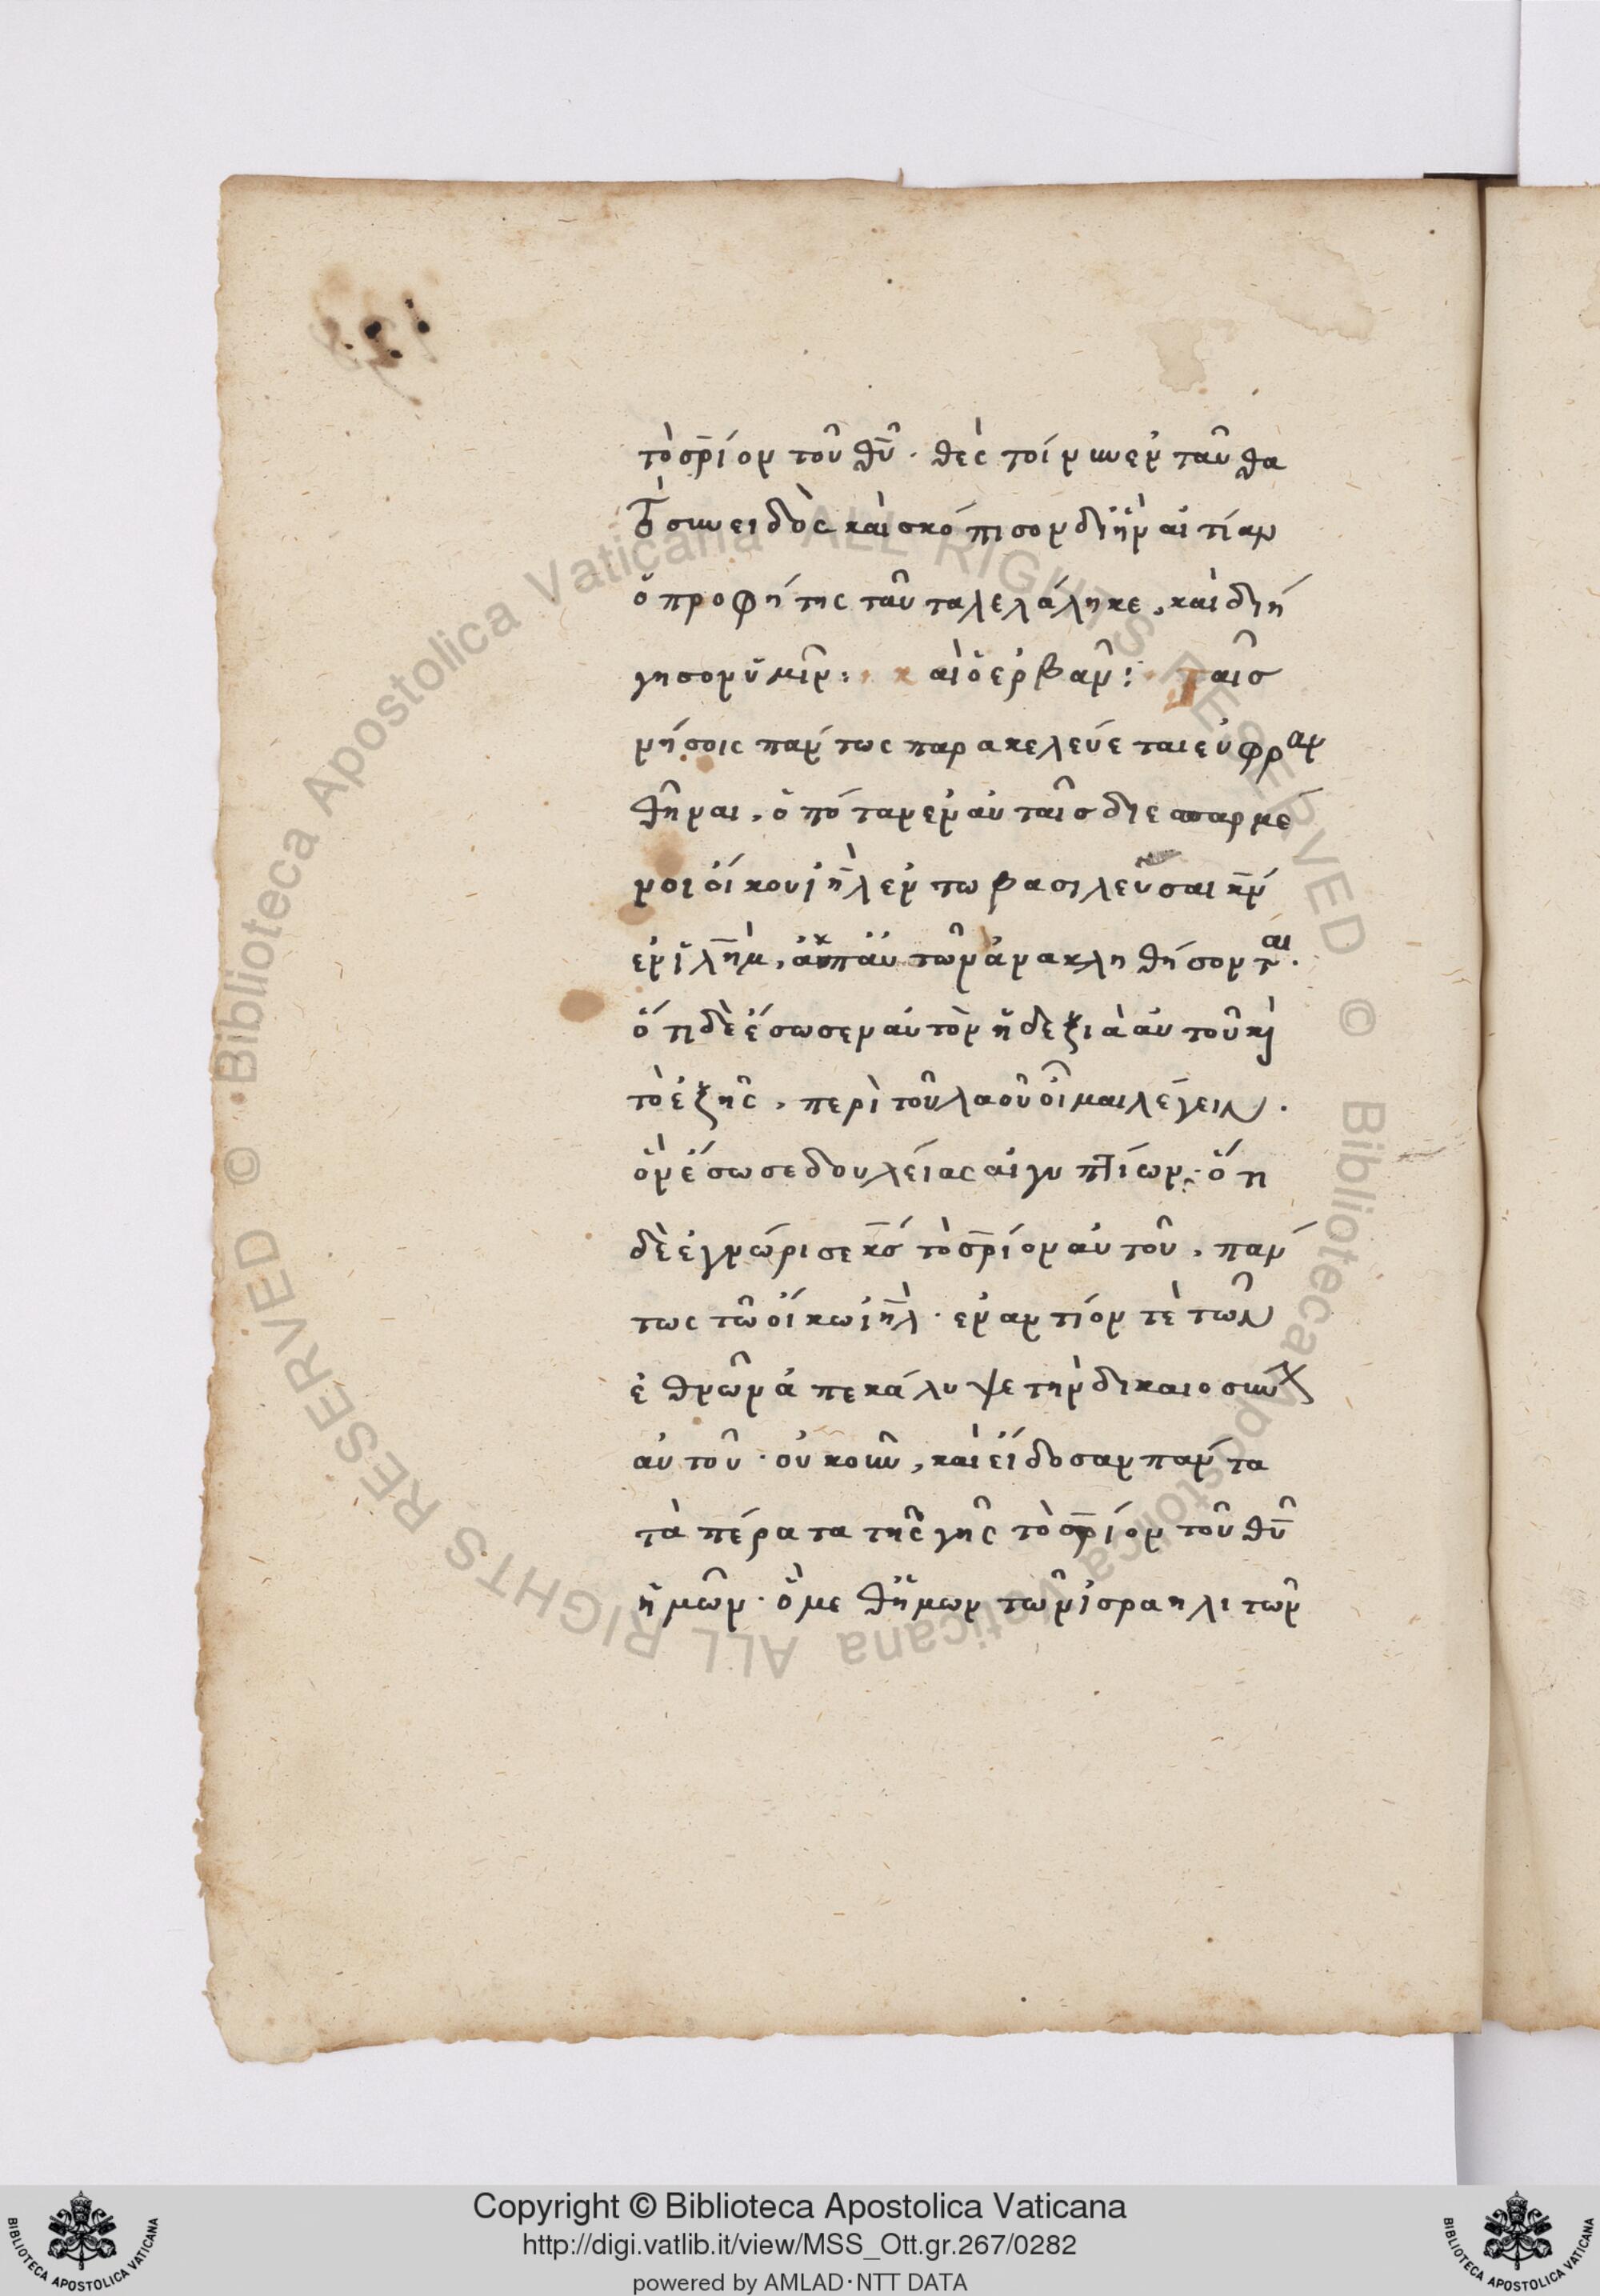 τὸ σ̅ρ̅ίον τοῦ θ̅υ̅. θὲς τοίνυν ἐνταῦθα
τὸ συνειδὸς καὶ σκόπισον δι ἣν αἰτίαν
ὁ προφήτης ταῦτα λελάληκε, καὶ διή
γησον ὑμῖν: καὶ ὁ ἐρβαν: ταῖσ
νήσοις πάντως παρακελεύεται εὐφραν
θῆναι, ὁπόταν ἐν αὐταῖσ διεσπαρμέ
νοι οἴκου ι̅η̅λ̅ ἐν τω βασιλεῦσαι κ̅ν̅
ἐν ι̅λ̅η̅μ̅, ἀπ αὐτῶν ἀνακληθήσονται.
ὅτι δὲ ἔσωσεν αὐτὸν ἡ δεξιὰ αὐτοῦ κὶ
τὸ ἑξῆς, περὶ τοῦ λαοῦ οἶμαι λέγειν.
ὃν ἔσωσε δουλείας αἰγυπτίων. ὅτι
δὲ ἐγνώρισε κ̅σ̅ τὸ σ̅ρ̅ίον αὐτοῦ, πάν
τως τῶ οἴκω ι̅η̅λ̅. ἐναντίον τὲ τῶν
ἐθνῶν ἀπεκάλυψε τὴν δικαιοσύνην
αὐτοῦ. οὐκοῦν, καὶ εἴδοσαν πάντα
τὰ πέρατα τῆς γῆς τὸ σ̅ρ̅ίον τοῦ θ̅υ̅
ἡμῶν. ὁ μεθ ἡμων τῶν ἰσραηλιτῶν
Copyright © Biblioteca Apostolica Vaticana
http://digi.vatlib.it/view/MSS_Ott.gr.267/0282
powered by AMLAD·NTT DATA
BIBLIOTECA APOSTOLICA VATICANA
BIBLIOTECA APOSTOLICA VATICANA
© Biblioteca Apostolica Vaticana ALL RIGHTS RESERVED
© Biblioteca Apostolica Vaticana ALL RIGHTS RESERVED